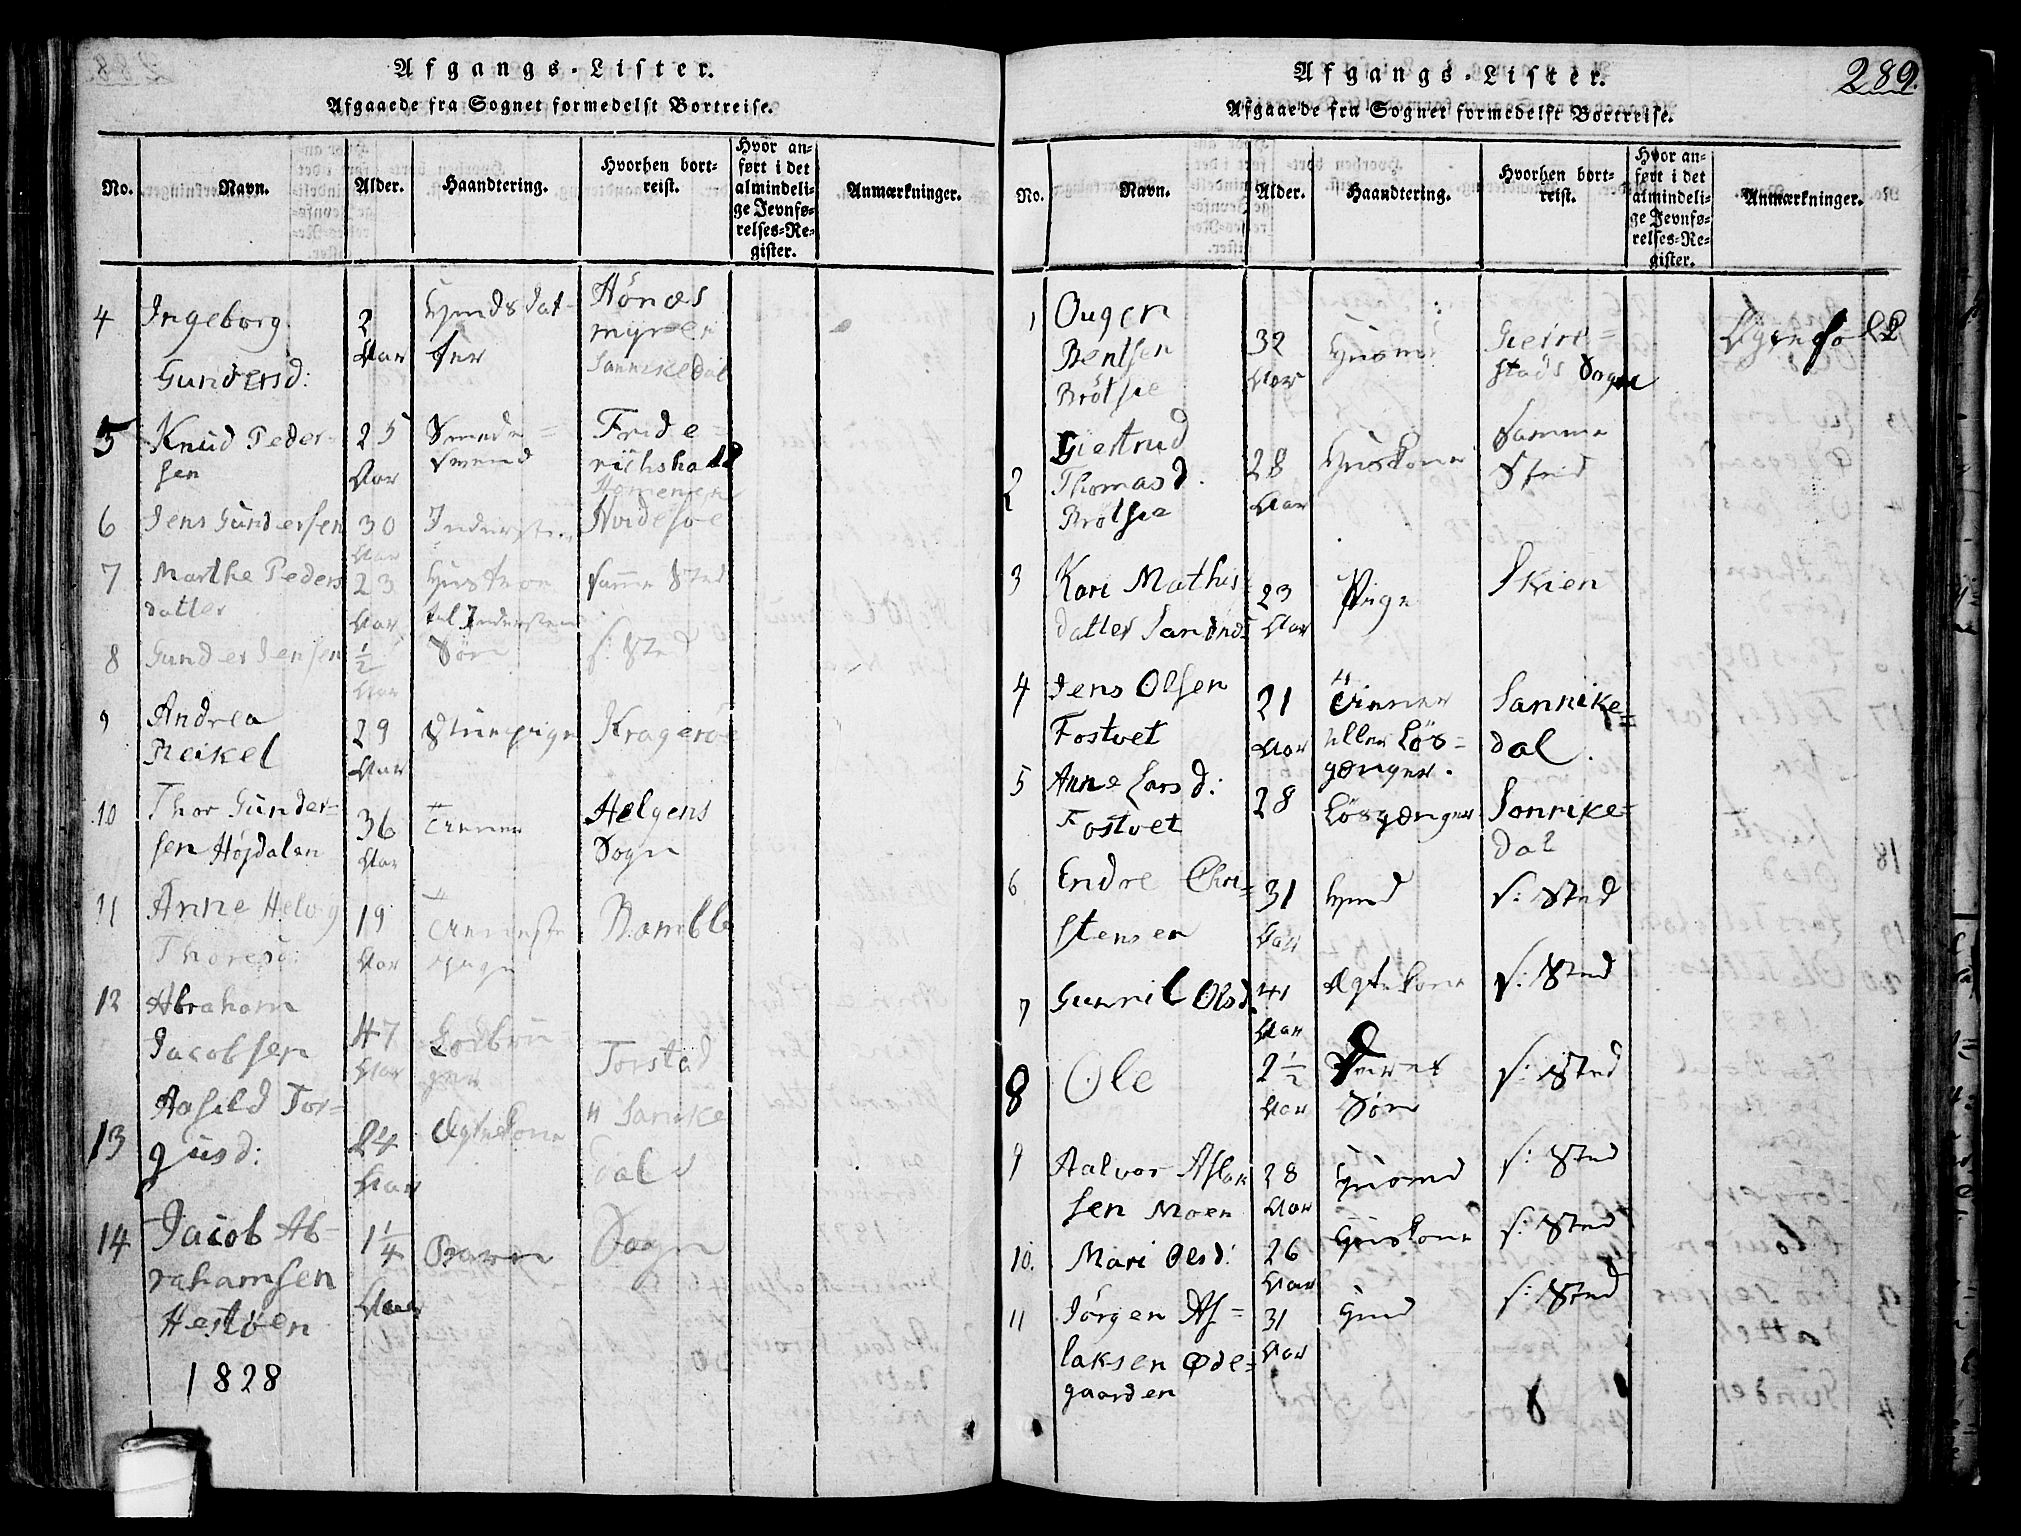 Afgangs-Lister.
Afgaaede fra Sognet formedelst Bortreise.
No.
Navn.
Alder.
Haandtering.
Hvorhen bort-
reist.
Hvor an-
ført i det
almindeli-
ge Jevnfø-
relses-Re-
gister.
Anmærkninger.
4
Ingeborg
Gundersd:
2
Aar
Hønæs
myren
Sannikedal
5
Knud Peder-
sen
25
Aar
Smede=
Svend
Fride-
richshald
6
Jens Gundersen
30
Aar
Hvidesøe
7
Marthe Peders
datter
23
Aar
samme Sted
8
Gunder Jensen
1/2
Aar
Søn
s: Sted
9
Andrea
Reikel
29
Aar
Kragerøe
10
Thor Gunder-
sen Høydalen
36
Aar
Tiener
Helgens
Sogn
11
Anne Helvig
Thoresd:
19
Aar
Tieneste
Pige
Bamble
12
Abraham
Jacobsen
47
Aar
Torstad
13
Aasild Tor-
giusd:
24
Aar
Ægtekone
Sanike
dals
14
Jacob Ab-
rahamsen
Hestøen
1 1/4
Aar
Barn
Sogn
1828
Afgangs-Lister.
289.
Afgaaede fra Sognet formedelst Bortreise.
No.
Navn.
Alder.
Haandtering.
Hvorhen bort-
reist.
Hvor an-
ført i det
almindeli-
ge Jevnfø-
relses-Re-
gister.
Anmærkninger.
1
Ougen
Bentsen
Brøtsie
32
Aar
Huusm:
Gierre=
stads Sogn
2
Giertrud
Thomasd.
Brøtsie
28
Aar
Huuskone
Samme
Sted
3
Kari Mathis
datter Sandnes
23
Aar
Pige
Skien
4
Jens Olsen
Fostvet
21
Aar
Tiener
eller Løs=
gænger.
Sannike=
dal.
5
Anne Larsd:
Fostvet
28
Løsgænger
Sonnike=
dal
6
Endre Chri=
stensen
31
Aar
s: Sted
7
Gunnil Olsd.
41
Aar
Ægtekone
s: Sted
8
Ole
2 1/2
Aar
Søn
s: Sted
9
Aalvor Aslak
sen Moen
28
Aar
Huusmd
s: Sted
10.
Mari Olsd:
26
Aar
Huuskone
s: Sted
11
Jørgen As=
laksen Øde=
gaarden
31
Aar
s: Sted